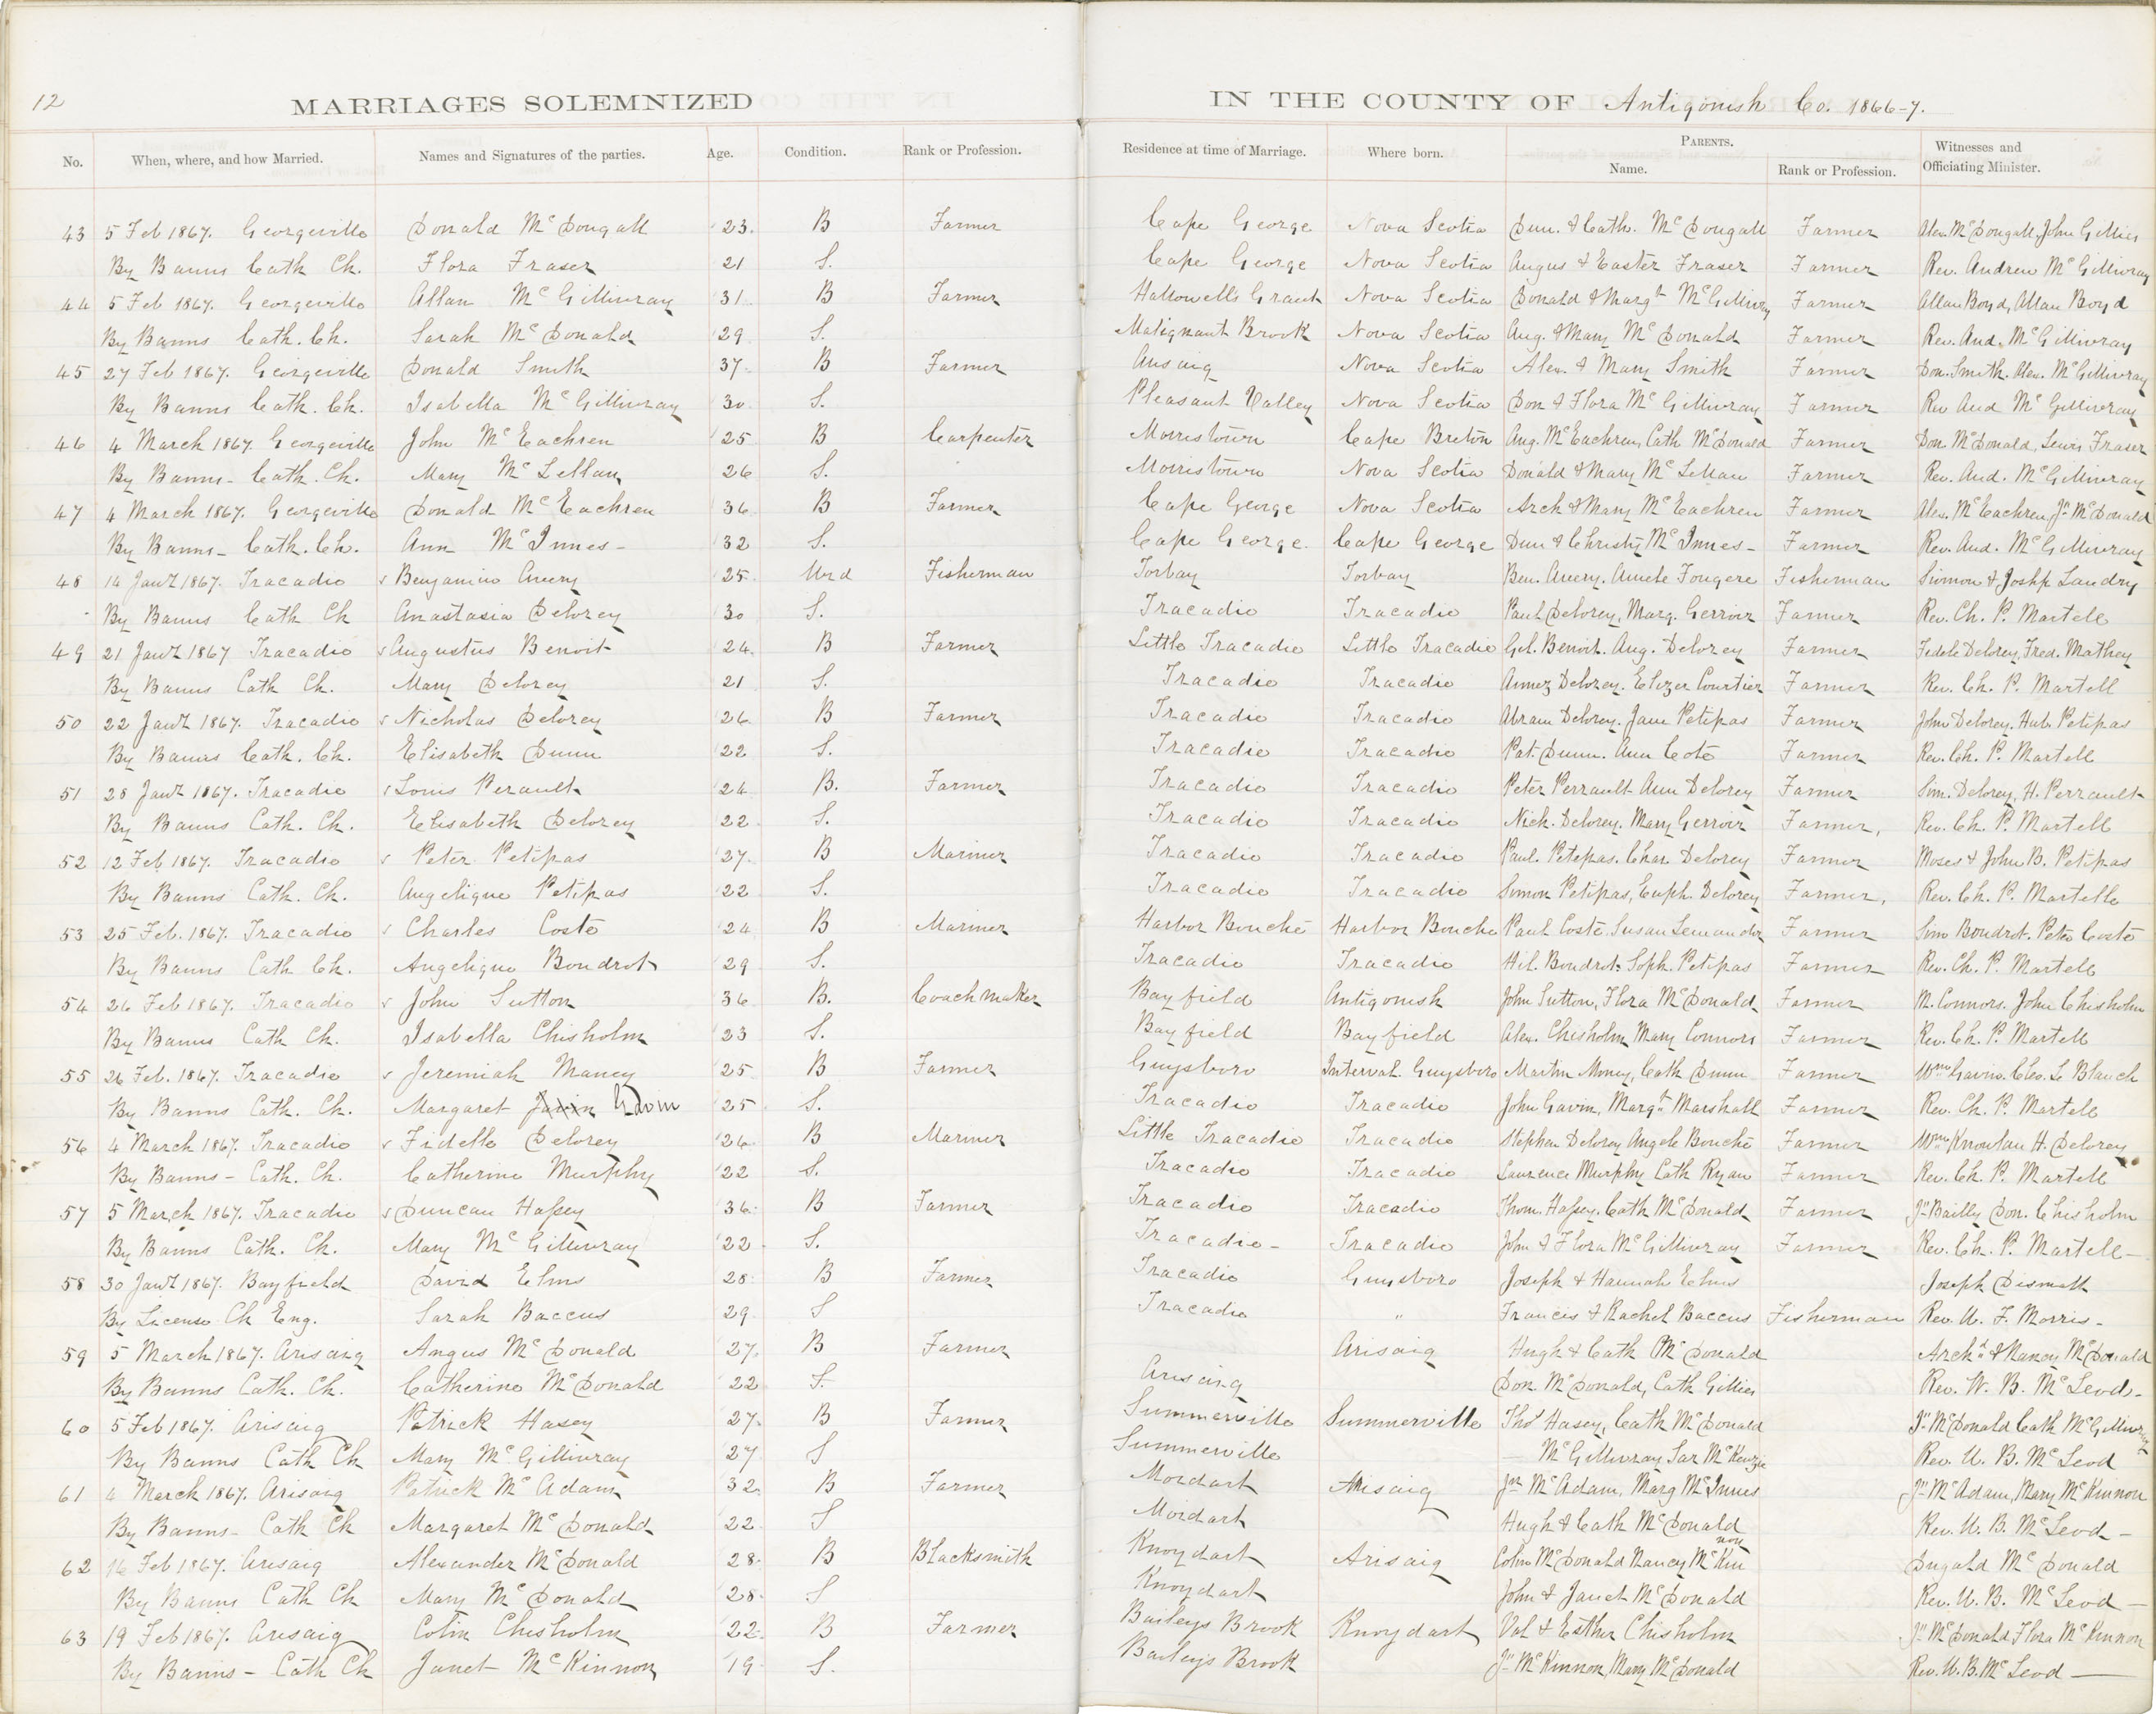 12
MARRIAGES SOLEMNIZED IN THE COUNTY OF Antigonish Co. 1866-7.
No. When, where, and how Married. Names and Signatures of the parties. Age. Condition. Rank or Profession. Residence at time of Marriage. Where born. PARENTS. Name. Rank or Profession. Witnesses and Officiating Minister.
43 5 Feb 1867. Georgeville Donald McDougall 23. B Farmer Cape George Nova Scotia Dun. & Cath. McDougall Farmer Alex. McDougall, John Gillies
By Banns Cath Ch. Flora Fraser 21 S. Cape George Nova Scotia Angus & Easter Fraser Farmer Rev. Andrew McGillivray
44 5 Feb 1867. Georgeville Allan McGillivray 31. B Farmer Hallowells Grant Nova Scotia Donald & Margt McGillivry Farmer Allan Boyd, Allan Boyd
By Banns Cath. Ch. Sarah McDonald 29 S. Malignant Brook Nova Scotia Aug. & Mary McDonald Farmer Rev. And. McGillivray
45 27 Feb 1867. Georgeville Donald Smith 37. B Farmer Arisaig Nova Scotia Alex. & Mary Smith Farmer Don. Smith. Alex. McGillivray
By Banns Cath. Ch. Isabella McGillivray 30. S. Pleasant Valley Nova Scotia Don & Flora McGillivray Farmer Rev And McGillivray
46 4 March 1867. Georgeville John McEachren 25 B Carpenter Morristown Cape Breton Aug. McEachren, Cath McDonald Farmer Don. McDonald, Lewis Fraser
By Banns - Cath. Ch. Mary McLellan 26 S. Morristown Nova Scotia Donald & Mary McLellan Farmer Rev. And. McGillivray
47 4 March 1867. Georgeville Donald McEachren 36 B Farmer Cape George Nova Scotia Arch & Mary McEachren Farmer Alex. McEachren, Jn McDonald
By Banns - Cath. Ch. Ann McInnes - 32 S. Cape George. Cape George Dun & Christy McInnes - Farmer Rev. And. McGillivray
48 14 Jany 1867. Tracadie Benjamin Avery 25. Wid Fisherman Torbay Torbay Ben. Avery. Amele Fougere Fisherman Simon & Joshp Landry
By Banns Cath Ch Anastasia Delorey 30 S. Tracadie Tracadie Paul Delorey, Marg. Gerroir Farmer Rev. Ch. P. Martell
49 21 Jany 1867 Tracadie Augustus Benoit 24. B Farmer Little Tracadie Little Tracadie Gel. Benoit. Aug. Delorey Farmer Fidele Delorey, Fred. Mathey
By Banns Cath Ch. Mary Delorey 21 S. Tracadie Tracadie Delorey. Elizer Courtier Farmer Rev. Ch. P. Martell
50 22 Jany 1867. Tracadie Nicholas Delorey 26. B Farmer Tracadie Tracadie Abram Delorey. Jane Petipas Farmer John Delorey. Hub. Petipas
By Banns Cath. Ch. Elisabeth Dunn 22 S. Tracadie Tracadie Pat. Dunn. Ann Cote Farmer Rev. Ch. P. Martell
51 28 Jany 1867. Tracadie Louis Perault 24 B. Farmer Tracadie Tracadie Peter Perrault Ann Delorey Farmer Sim. Delorey, H. Perrault
By Banns Cath. Ch. Elisabeth Delorey 22. S. Tracadie Tracadie Nich. Delorey. Mary Gerroir Farmer, Rev. Ch. P. Martell
52 12 Feb 1867. Tracadie Peter Petipas 27. B Mariner Tracadie Tracadie Paul. Petepas. Char Delorey Farmer Moses & John B. Petipas
By Banns Cath. Ch. Angelique Petipas 22 S. Tracadie Tracadie Simon Petipas, Euph. Delorey Farmer, Rev. Ch. P. Martell
53 25 Feb. 1867. Tracadie Charles Coste 24 B Mariner Harbor Bouché Harbor Bouche Paul Coste. Susan Farmer Sim Boudrot. Peter Coste
By Banns Cath Ch. Angelique Boudrot 29 S. Tracadie Tracadie Hil. Boudrot. Soph. Petipas Farmer Rev. Ch. P. Martell
54 26 Feb 1867. Tracadie John Sutton 36 B. Coachmaker Bayfield Antigonish John Sutton, Flora McDonald Farmer M. Connors. John Chisholm
By Banns Cath Ch. Isabella Chisholm 23 S. Bayfield Bayfield Alex. Chisholm Mary Connors Farmer Rev. Ch. P. Martell
55 26 Feb. 1867. Tracadie Jeremiah Maney 25 B Farmer Guysboro Interval Guysboro Martin Money, Cath Dunn Farmer Wm Gavin. Cleo. Le Blanch
By Banns Cath. Ch. Margaret Gavin 25 S. Tracadie Tracadie John Gavin, Margt Marshall Farmer Rev. Ch. P. Martell
56 4 March 1867. Tracadie Fidelle Delorey 26. B Mariner Little Tracadie Tracadie Stephen Delorey Angele Bouché Farmer Wm Knowlan H. Delorey
By Banns - Cath. Ch. Catherine Murphy 22 S. Tracadie Tracadie Laurence Murphy Cath Ryan Farmer Rev. Ch. P. Martell
57 5 March 1867. Tracadie Duncan Hassey 36. B Farmer Tracadie Tracadie Thom. Hassey. Cath McDonald Farmer Jn Bailly Don. Chisholm
By Banns Cath. Ch. Mary McGillivray 22. S. Tracadie - Tracadie John & Flora McGillivray Farmer Rev. Ch. P. Martell -
58 30 Jany 1867. Bayfield David Elms 28. B Farmer Tracadie Guysboro Joseph & Hannah Elms Joseph Dismatt
By License Ch Eng. Sarah Baccus 29. S Tracadie " Francis & Rachel Baccus Fisherman Rev. U. F. Morris -
59 5 March 1867. Arisaig Angus McDonald 27. B Farmer Arisaig Hugh & Cath McDonald Archd & Nancy McDonald
By Banns Cath. Ch. Catherine McDonald 22 S. Arisaig Don. McDonald, Cath Gillies Rev. W. B. McLeod -
60 5 Feb 1867. Arisaig Patrick Hasey 27. B Farmer Summerville Summerville Thos Hasey, Cath McDonald Jn McDonald Cath McGillivray
By Banns Cath Ch Mary McGillivray 27 S Summerville — McGillivray Sar McKenzie Rev. U. B. McLeod
61 4 March 1867. Arisaig Patrick McAdam 32. B Farmer Moidart Arisaig Jn McAdam, Marg McInnes Jn McAdam, Mary McKinnon
By Banns - Cath Ch Margaret McDonald 22 S Moidart Hugh & Cath McDonald Rev. U. B. McLeod -
62 16 Feb 1867. Arisaig Alexander McDonald 28. B Blacksmith Knoydart Arisaig Colin McDonald Nancy McKinnon Dugald McDonald
By Banns Cath Ch Mary McDonald 28. S Knoydart John & Janet McDonald Rev. U. B. McLeod -
63 19 Feb 1867. Arisaig Colin Chisholm 22. B Farmer Baileys Brook Knoydart Val & Esther Chisholm Jn McDonald Flora McKinnon
By Banns - Cath Ch Janet McKinnon 19 S. Baileys Brook Jn McKinnon, Mary McDonald Rev. U. B. McLeod —